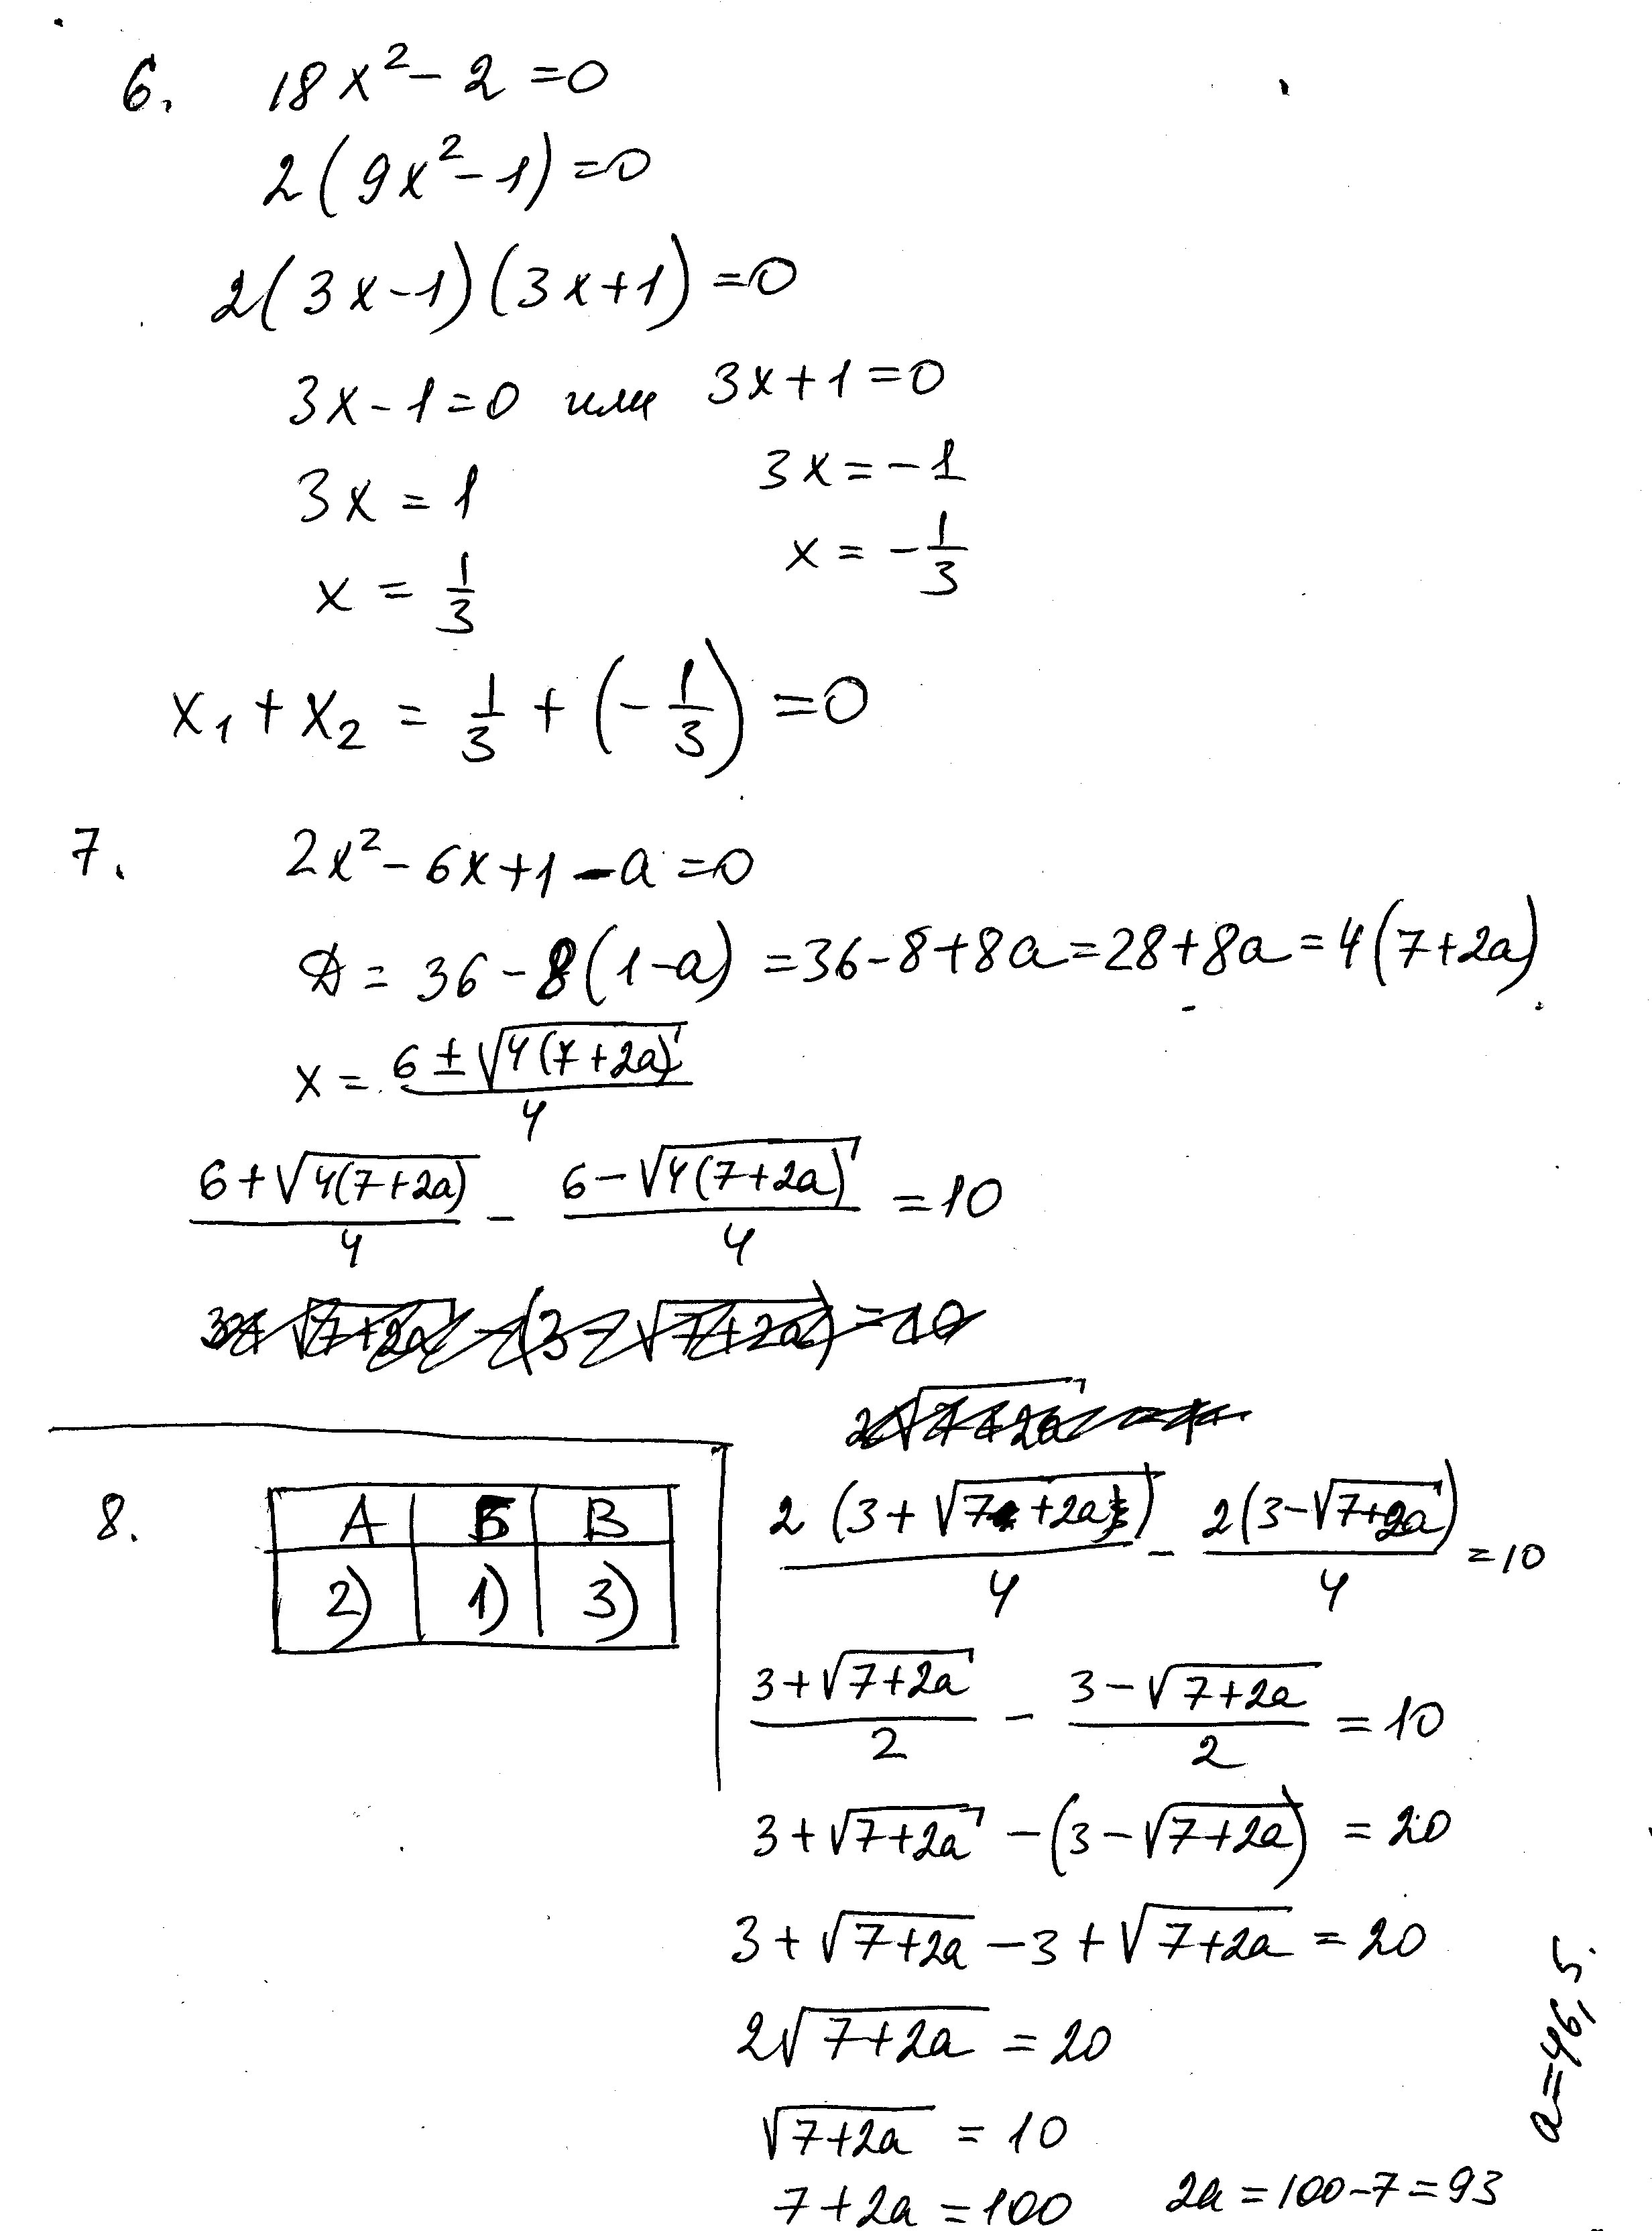 6. 18x² - 2 = 0
2(9x² - 1) = 0
2(3x - 1)(3x + 1) = 0
3x - 1 = 0 или 3x + 1 = 0
3x = 1
3x = -1
x = 1/3
x = -1/3
x₁ + x₂ = 1/3 + (-1/3) = 0
7. 2x² - 6x + 1 - a = 0
D = 36 - 8(1 - a) = 36 - 8 + 8a = 28 + 8a = 4(7 + 2a)
x = (6 ± √(4(7 + 2a)))/4
(6 + √(4(7 + 2a)))/4 - (6 - √(4(7 + 2a)))/4 = 10
2(3 + √(7 + 2a))/4 - 2(3 - √(7 + 2a))/4 = 10
(3 + √(7 + 2a))/2 - (3 - √(7 + 2a))/2 = 10
3 + √(7 + 2a) - (3 - √(7 + 2a)) = 20
3 + √(7 + 2a) - 3 + √(7 + 2a) = 20
2√(7 + 2a) = 20
√(7 + 2a) = 10
7 + 2a = 100
2a = 100 - 7 = 93
a = 46,5.
8. А Б В
2) 1) 3)